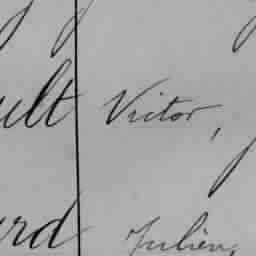 ult Victor,
rd Julien,